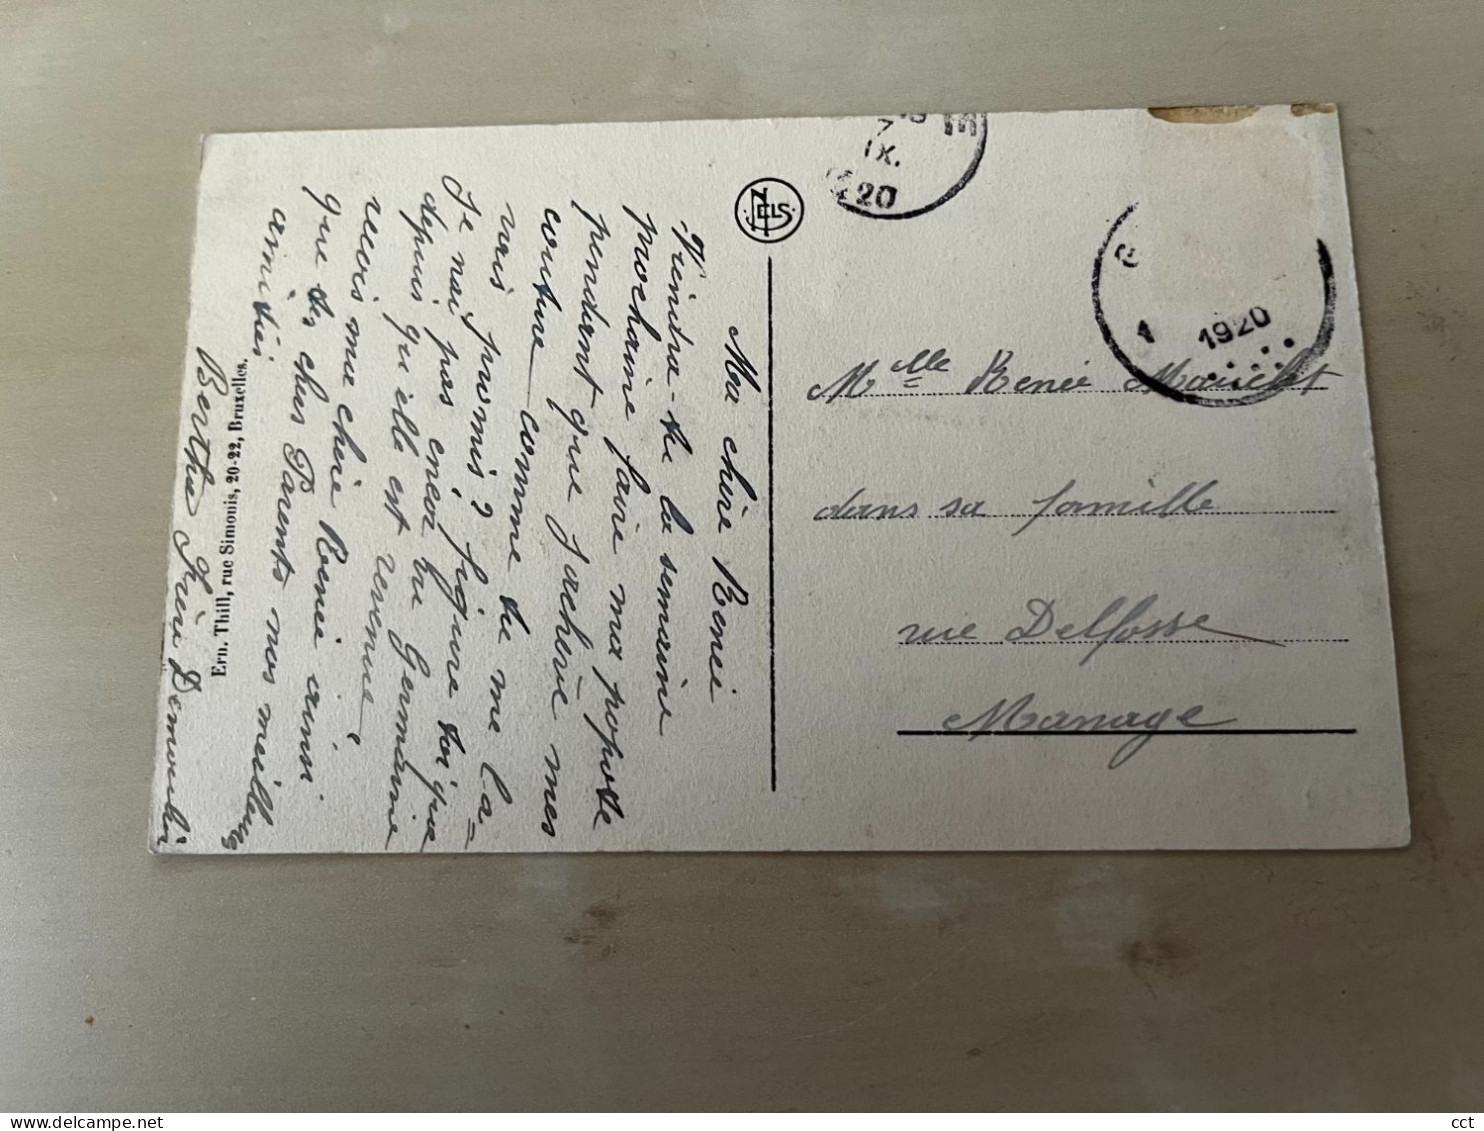 Ma chère Renée
Viendra-te la semaine
prochaine faire ma popote
pendant que j'achève mes
couture comme tu me l'a=
vais promis? figure toi que
Je nai pas encor vu Germaine
depuis qu'elle est revenue
recois ma chère Renée ainsi
que tes chers Parents mes meilleurs
amitiés
Berthe
Ern. Thill, rue Simonis, 20-22, Bruxelles.
NELS
7
IX.
20
E
G
1 1920
Melle Renée
dans sa famille
rue Delfosse
Manage
cct